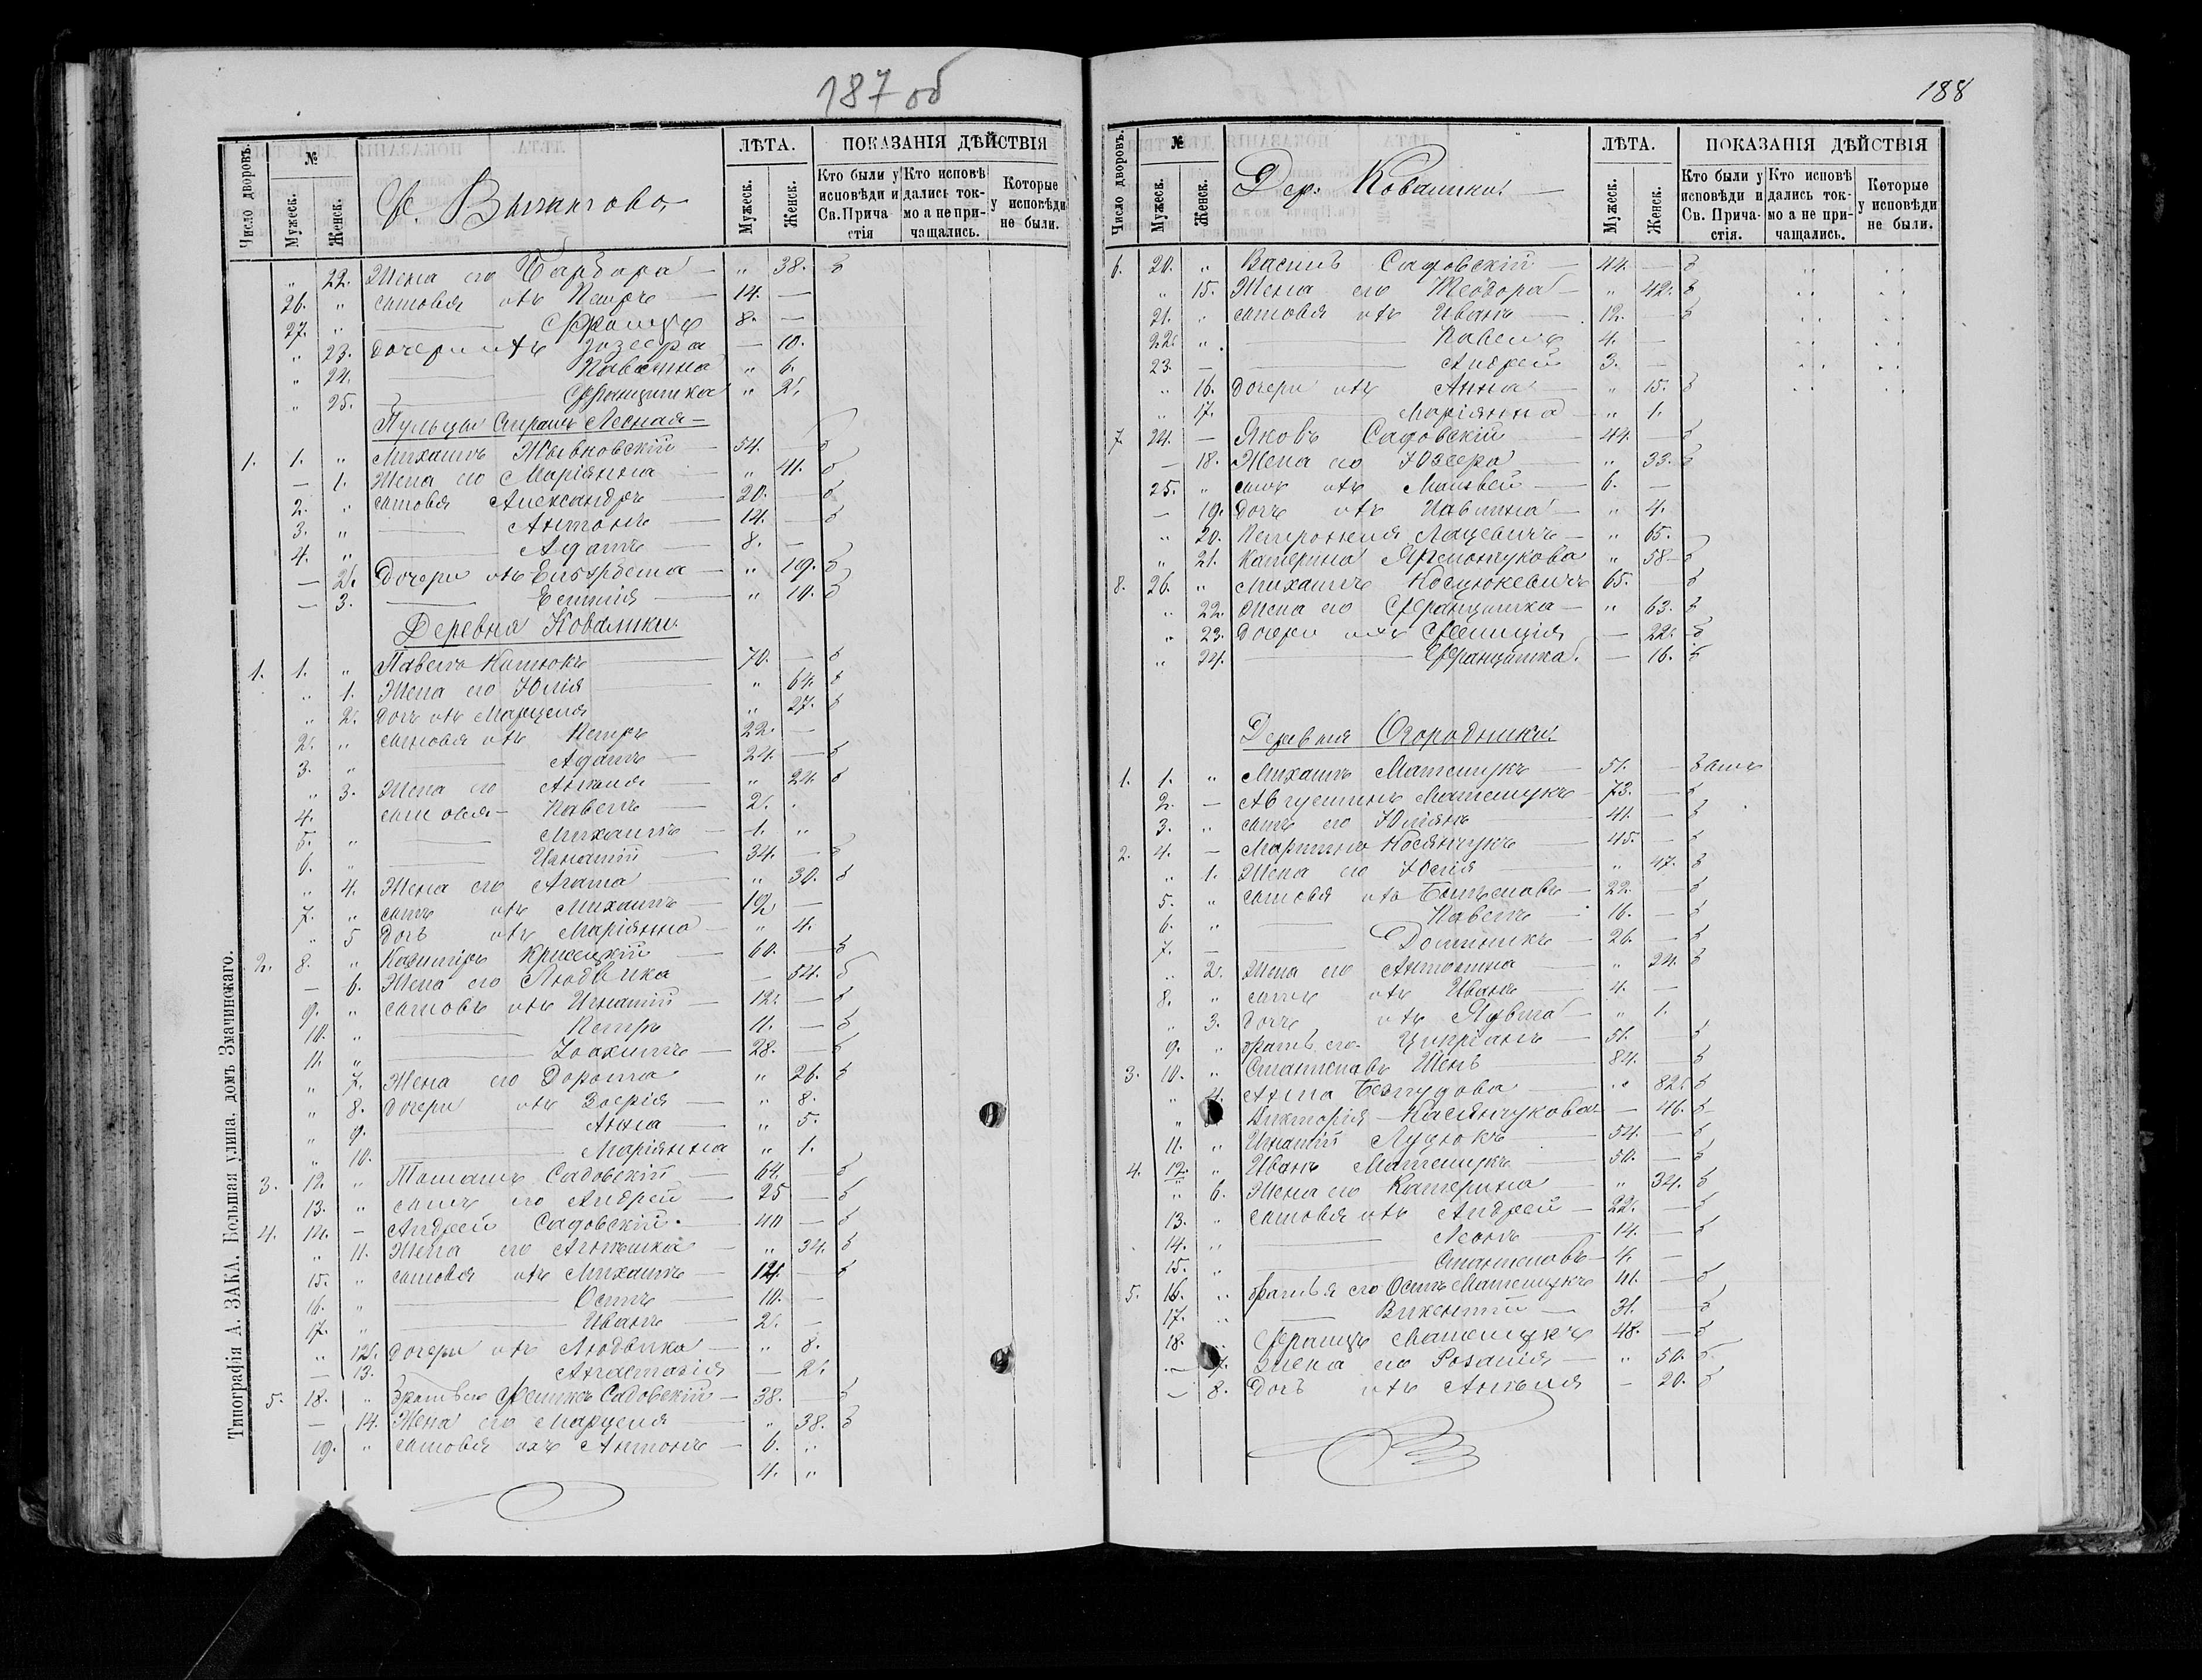 187 об
Число дворовъ. № Мужеск. Женск. ЛѢТА. Мужеск. Женск. ПОКАЗАНІЯ ДѢЙСТВІЯ
Кто были у исповѣди и Св. Прича стія
Кто исповѣ дались ток- мо а не при- чащались.
Которые у исповѣди не были.
„ 22. Жена его Барбора „ 38.
26. „ сыновья ихъ Петръ 14. —
27. „ — Францъ 8. —
„ 23. дочери ихъ Іозефа — 10.
„ 24. — „ 6.
„ 25. — Францишка „ 2.
Лесная
1. 1. „ Михаилъ 54. —
— 1. Жена его Маріянна „ 41.
2. „ сыновья Александръ 20.
3. „ — Антонъ 14. —
4. „ — Адамъ 8. —
— 2. Дочери ихъ Елизабета „ 19.
— 3. — „ 10.
Деревня Ковалики.
1. 1. „ Павелъ 70. —
„ 1. Жена его Юлія „ 64.
„ 2. дочь ихъ Марцеля „ 27.
2. „ сыновья ихъ Петръ 22. —
3. „ — Адамъ 24. —
„ 3. Жена его Анеля „ 24.
4. сыновья Павелъ 2.
5. „ — Михаилъ 1. „
6. „ — Игнатій 34. —
„ 4. Жена его Агата „ 30.
7. „ сынъ ихъ Михаилъ 10/1 —
„ 5 Дочь ихъ Маріянна „ 4.
2. 8. „ Казиміръ 60. —
— 6. Жена его Людвика — 54.
9. „ сыновья ихъ Игнатій 12. —
10. „ — Петръ 11. —
11. „ — Іоахимъ 28. —
„ 7. Жена его Дорота „ 26.
„ 8. дочери ихъ Зофія „ 8.
„ 9. — Анна „ 5.
„ 10. — Маріянна „ 1.
3. 12. „ Томашъ Садовскій 64. —
13. „ сынъ его Андрей 25 —
4. 14. — Андрей Садовскій 40 —
„ 11. Жена его „ 34.
15. „ сыновья ихъ Михаилъ 14. —
16. „ — Осипъ 10. —
17. „ — Иванъ 2. —
„ 12. дочери ихъ Людвика „ 8.
— 13. — Анастазія — 2.
5. 18. „ Феликсъ Садовскій 38. —
— 14. Жена его Марцеля „ 38.
19. „ сыновья ихъ Антонъ 6. „
4. „
Типографія А. ЗАКА. Большая улица, домъ Змачинскаго.
188
Число дворовъ. № Мужеск. Женск. ЛѢТА. Мужеск. Женск. ПОКАЗАНІЯ ДѢЙСТВІЯ
Кто были у исповѣди и Св. Прича- стія.
Кто исповѣ дались ток- мо а не при- чащались.
Которые у исповѣди не были.
Дер. Ковалики.
6. 20. „ Василь Садовскій 44. —
„ 15. Жена его Теодора „ 42.
21. „ сыновья ихъ Иванъ 12. —
22. „ — Павелъ 4. —
23. — — Андрей 3. —
„ 16. дочери ихъ Анна „ 15.
„ 17. — Маріянна „ 1.
7. 24. — Яковъ Садовскій 44. —
— 18. Жена его Юзефа „ 33.
25. „ сынъ ихъ Матвей 6. —
— 19. дочь ихъ Павлина „ 4.
„ 20. Петронеля Лацевичъ „ 65.
„ 21. Катерина „ 58
8. 26. „ Михаилъ Косцюкевичъ 65. —
„ 22. Жена его Францишка „ 63.
„ 23. дочери ихъ Фелиція — 22.
„ 24. — Францишка — 16.
Деревня Огородники
1. 1. „ Михаилъ Матещукъ 51. —
2. — Августинъ Матещукъ 73. —
3. „ сынъ его Юліянъ 41. —
2. 4. — Мартинъ Касянчукъ 45. —
„ 1. Жена его Юлія „ 47.
5. „ сыновья ихъ Болеславъ 22. —
6. „ — Павелъ 16. —
7. — — Доминикъ 26. —
„ 2. Жена его Антонина „ 24.
8. „ сынъ ихъ Иванъ 4. —
„ 3. дочь ихъ Ядвига „ 1.
9. „ братъ его Ципріянъ 51.
3. 10. „ Станиславъ 84. —
„ 4. Анна „ 82.
„ Викторія Касянчукова — 46.
11. „ Игнатій Луцюкъ 54. —
4. 12. „ Иванъ Матещукъ 50. —
„ 6. Жена его Катерина „ 34.
13. „ сыновья ихъ Андрей 22. —
14. „ — Леонъ 14. —
15. „ — Станиславъ 4. —
5. 16. „ братья его Осипъ Матещукъ 41. —
17. „ — Викентій 31. —
18. „ Францъ Матещукъ 48. —
— 7. Жена его Розалія „ 50.
— 8. Дочь ихъ Анеля — 20.